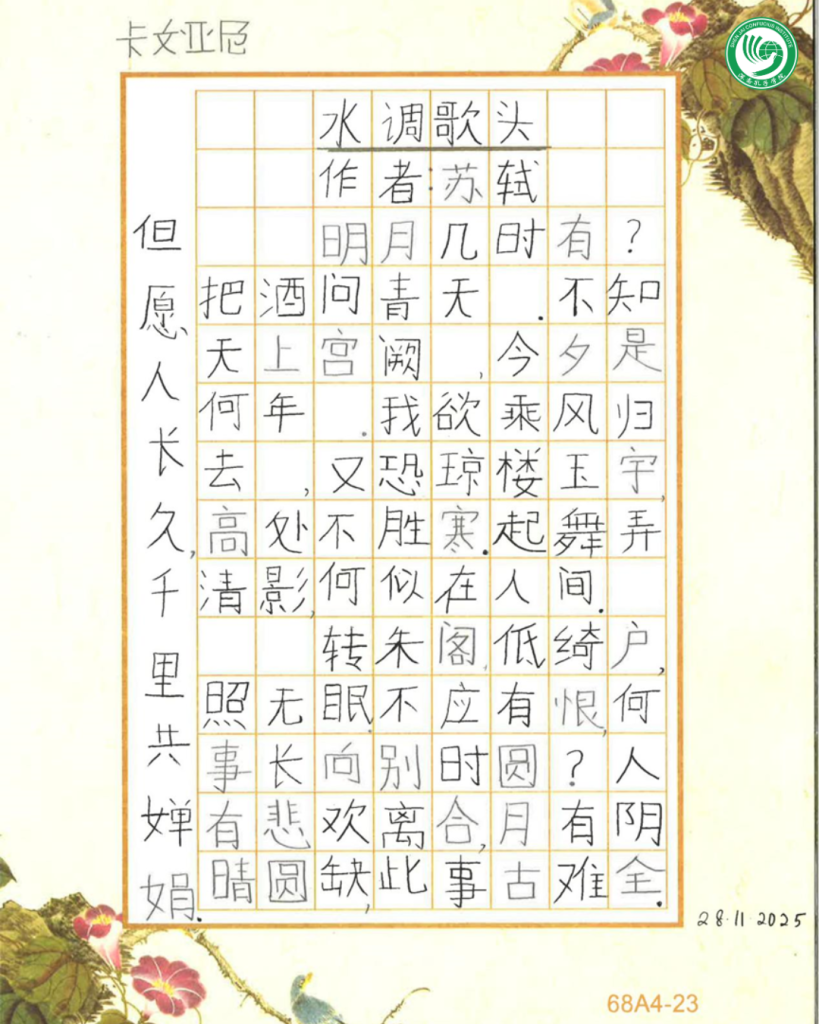 卡文亚尼
水调歌头
作者:苏轼
明月几时有?
把酒问青天.不知
天上宫阙,今夕是
何年.我欲乘风归
去,又恐琼楼玉宇,
高处不胜寒.起舞弄
清影,何似在人间.
转朱阁,低绮户,
照无眠.不应有恨,何
事长向别时圆?人
有悲欢离合,月有阴
晴圆缺,此事古难全.
但愿人长久,千里共婵娟.
28.11.2025
68A4-23